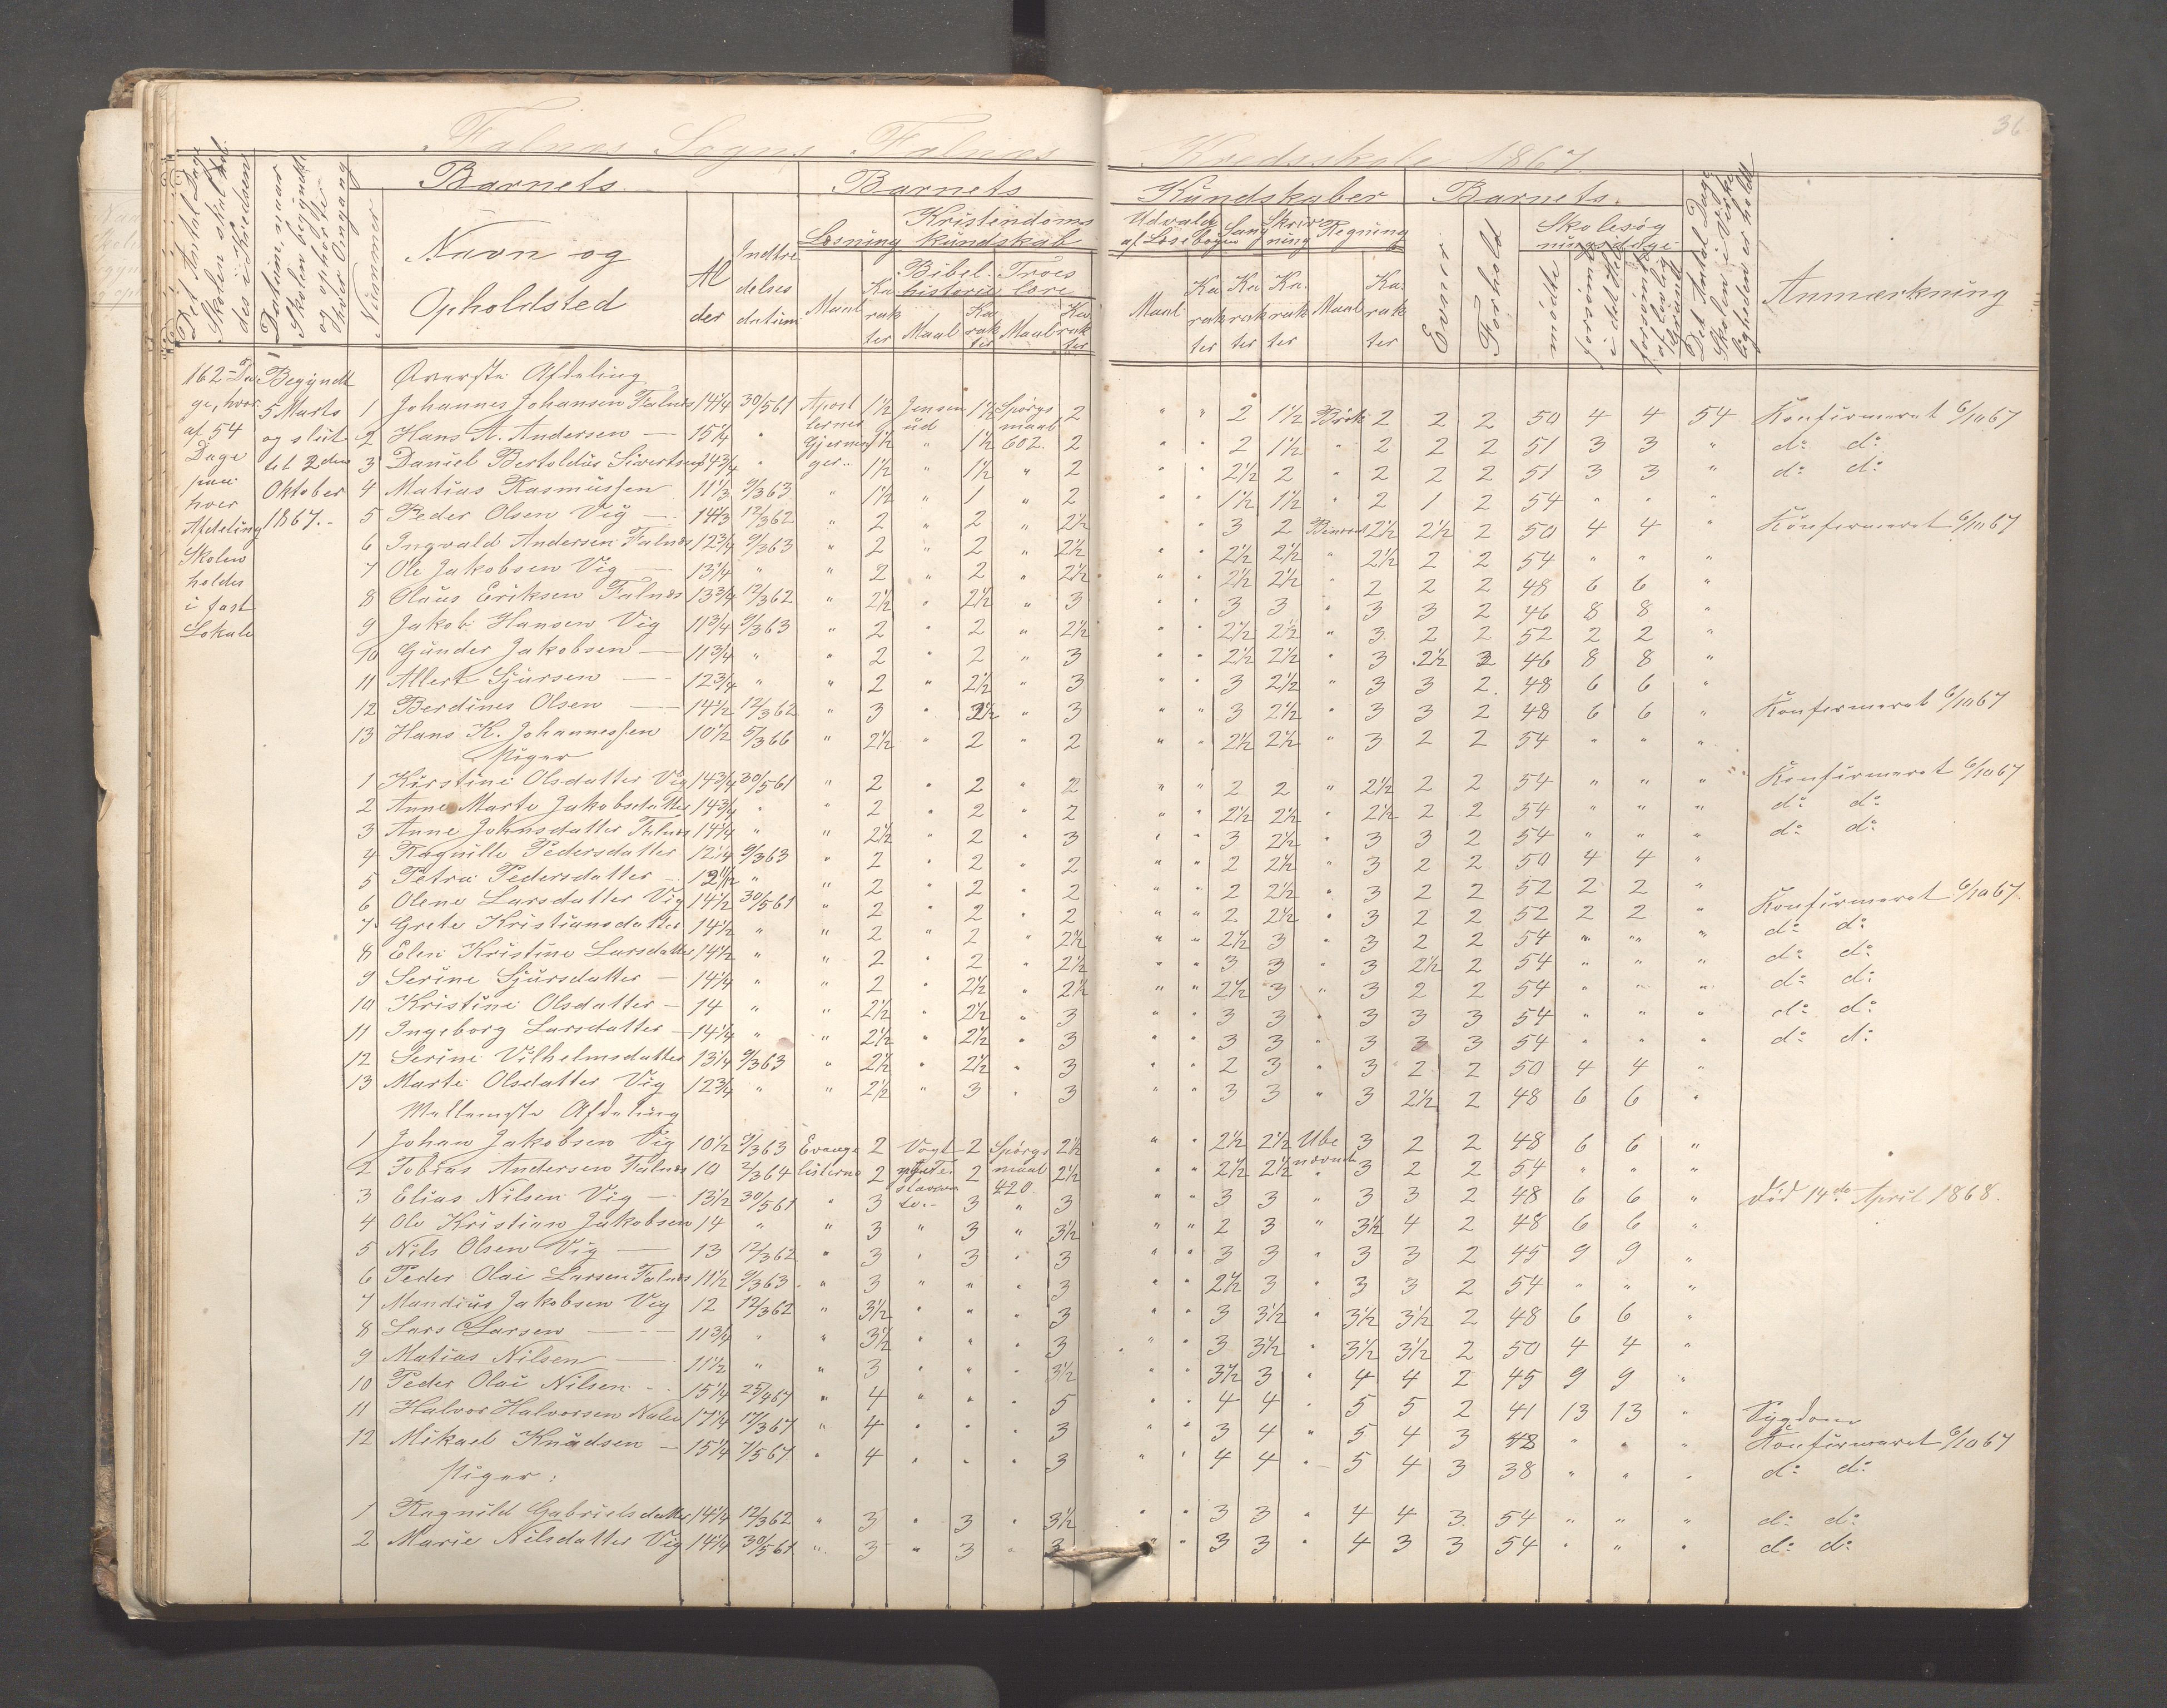 36
Falnæs Sogns Falnæs Kredsskole 1867.
Det Antal Dage Skolen skal holdes i Kredsen
Datum, naar Skolen begyndte og ophørte hver Omgang
Nummer
Barnets
Navn og Opholdsted
Alder
Indtrædelses datum
Barnets Kundskaber
Læsning
Maal
Karakter
Kristendoms kundskab
Bibelhistorie
Maal
Karakter
Troeslære
Maal
Karakter
Udvalg af Læsebogen
Maal
Karakter
Sang
Karakter
Skrivning
Karakter
Regning
Maal
Karakter
Barnets
Evner
Forhold
Skolesøgningsdage
mødte
forsømte i det Hele
forsømte af lovlig Grund
Det Antal Dage Skolen i Virkeligheden er holdt
Anmærkning
162 Dage, hvoraf 54 Dage paa hver Afdeling Skolen holdes i fast Lokale
Begyndt 5 Marts og slut til 2den Oktober 1867.-
Øverste Afdeling
1 Johannes Johansen Falnæs 14 1/4 30/5 61 Apostlernes Gjerninger.. 1 1/2 Jensenud 1 1/2 Spørgsmaal 602. 2 " " 2 1 1/2 Brøk 2 2 2 50 4 4 54 Konfirmeret 6/10 67
2 Hans A. Andersen — 15 1/4 " 1 1/2 " 1 1/2 2 " " 2 1 1/2 " 2 2 2 51 3 3 " do: do:
3 Daniel Bertoldus Sivertsen 14 3/4 " 1 1/2 " 1 1/2 " 2 " " 2 1/2 2 " 2 2 2 51 3 3 " do: do:
4 Matias Rasmussen 11 1/3 9/3 63 " 1 1/2 " 1 " 2 " " 1 1/2 1 1/2 " 2 1 2 54 " " "
5 Peder Olsen Vig — 14 1/3 12/3 62 " 2 " 2 " 2 1/2 " 3 2 Benævnt 2 1/2 2 1/2 2 50 4 4 " Konfirmeret 6/10 67
6 Ingvald Andersen Falnæs 12 3/4 9/3 63 " 2 " 2 " 2 1/2 " " 2 1/2 2 1/2 " 2 1/2 2 2 54 " " "
7 Ole Jakobsen Vig — 13 1/4 " " 2 " 2 " 2 1/2 " " 2 1/2 2 1/2 2 2 2 48 6 6 "
8 Olaus Eriksen Falnæs 13 3/4 12/3 62 " 2 1/2 " 2 1/2 " 3 " " 3 3 " 3 3 2 46 8 8 "
9 Jakob Hansen Vig 11 3/4 9/3 63 " 2 " 2 " 2 1/2 " " 2 1/2 2 1/2 " 3 2 2 52 2 2 "
10 Gunder Jakobsen — 11 3/4 " " 2 " 2 " 3 " " 2 1/2 2 1/2 " 3 2 1/2 2 46 8 8 "
11 Allert Sjursen — 12 3/4 " " 2 " 2 1/2 " 3 " " 3 2 1/2 " 3 3 2 48 6 6 "
12 Berdines Olsen — 14 1/2 12/3 62 " 3 " 2 1/2 " 3 " " 3 2 1/2 " 3 3 2 48 6 6 " Konfirmeret 6/10 67
13 Hans K. Johannessen 10 1/2 5/3 66 " 2 1/2 " 2 " 2 " " 2 1/2 2 1/2 " 3 2 2 54 " " "
Piger
1 Kirstine Olsdatter Vig 14 3/4 30/5 61 " 2 " 2 " 2 " " 2 2 " 2 1/2 2 2 54 " " " Konfirmeret 6/10 67
2 Anne Marte Jakobsdatter 14 3/4 " " 2 " 2 " 2 " " 2 1/2 2 1/2 " 2 1/2 2 2 54 " " " do: do:
3 Anne Johnsdatter Falnæs 14 1/4 " " 2 1/2 " 2 " 3 " " 3 2 1/2 " 3 3 2 54 " " " do: do:
4 Ragnille Pedersdatter 12 1/4 9/3 63 " 2 " 2 " 2 " " 2 2 1/2 " 3 2 2 50 4 4 "
5 Petra Pedersdatter - 12 1/12 " " 2 " 2 " 2 " " 2 2 1/2 " 3 2 2 52 2 2 "
6 Olene Larsdatter Vig 14 1/2 30/5 61 " 2 " 2 " 2 " " 2 2 1/2 " 3 2 2 52 2 2 " Konfirmeret 6/10 67.
7 Grete Kristiansdatter 14 1/2 " " 2 " 2 " 2 1/2 " " 2 1/2 3 " 3 2 2 54 " " " do: do:
8 Elen Kristine Larsdatter 14 1/2 " " 2 " 2 " 2 1/2 " " 3 3 " 3 2 1/2 2 54 " " " do: do:
9 Serine Sjursdatter — 14 1/4 " " 2 " 2 1/2 " 2 1/2 " " 2 1/2 3 " 3 2 2 54 " " " do: do:
10 Kristine Olsdatter — 14 " " 2 1/2 " 2 1/2 " 3 " " 3 3 " 3 3 3 54 " " " do: do:
11 Ingeborg Larsdatter — 14 1/4 " " 2 1/2 " 2 1/2 " 3 " " 3 3 " 3 3 3 54 " " " do: do:
12 Serine Vilhelmsdatter 13 1/4 9/3 63 " 2 1/2 " 2 1/2 " 3 " " 2 3 " 3 2 2 50 4 4 "
13 Marte Olsdatter Vig 12 3/4 " " 2 1/2 " 3 " 3 " " 3 3 " 3 2 1/2 2 48 6 6 "
Mellemste Afdeling
1 Johan Jakobsen Vig 10 1/2 9/3 63 Evangelisterne 2 Vogt 2 Spørgsmaal 420. 2 1/2 " " 2 1/2 2 1/2 Ubenævnt 3 2 2 48 6 6 "
2 Tobias Andersen Falnæs 10 2/3 64 2 2 2 1/2 " " 2 1/2 2 1/2 " 3 2 2 54 " " "
3 Elias Nilsen Vig — 13 1/2 30/5 61 " 3 3 " 3 " " 3 3 " 3 3 2 48 6 6 " død 14de April 1868.
4 Ole Kristian Jakobsen 14 " " 3 " 3 " 3 1/2 " " 2 3 " 3 1/2 4 2 48 6 6 "
5 Nils Olsen Vig — 13 12/3 62 " 3 " 3 " 3 " " 3 3 " 3 3 2 45 9 9 "
6 Peder Olai Larsen Falnæs 11 1/2 9/3 63 " 3 " " " 3 " " 2 1/2 3 " 3 3 2 54 " " "
7 Mandius Jakobsen Vig 12 12/3 62 " 3 1/2 " " " 3 " " 3 3 1/2 " 3 1/2 3 1/2 2 48 6 6 "
8 Lars Larsen — 11 3/4 " " 3 1/2 " " " 3 " " 3 3 1/2 " 3 1/2 3 1/2 2 50 4 4 "
9 Matias Nilsen — 11 1/2 " " 3 " " " 3 1/2 " " 3 1/2 3 " 4 4 2 45 9 9 "
10 Peder Olai Nilsen - 15 1/4 25/4 67 " 4 " " " 5 " " 4 4 " 5 5 2 41 13 13 " Sygdom
11 Halvor Halvorsen 17 1/4 17/3 67 " 4 " " " 3 " " 3 4 " 5 4 3 48 " " " Konfirmeret 6/10 67
12 Mikael Knudsen — 15 1/4 7/5 67. " 4 " " " 3 " " 4 4 " 5 4 3 38 " " " do: do:
Piger:
1 Ragnild Gabrielsdatter 14 1/4 12/3 62 " 3 " 3 " 3 1/2 " " 3 3 " 4 4 3 54 " " " do: do:
2 Marie Nilsdatter Vig 14 1/4 30/5 61 " 3 " 3 " 3 " " 3 3 " 4 3 3 54 " " " do: do: